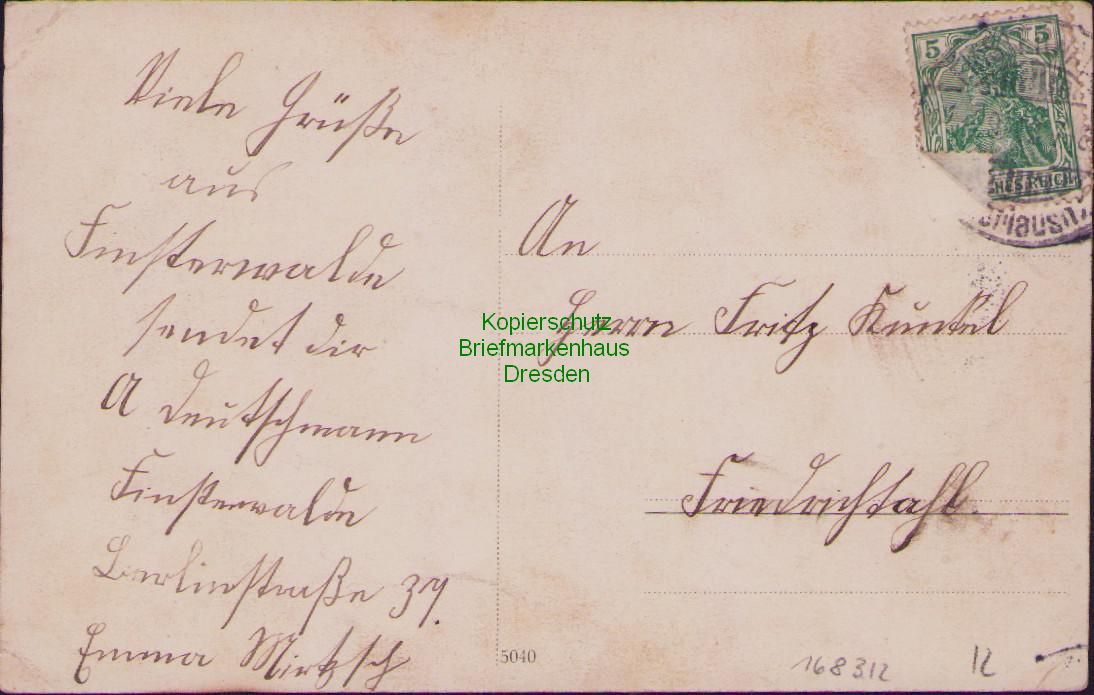 Viele Grüße
aus
Finsterwalde
sendet dir
A Deutschmann
Finsterwalde
Berlinstraße 39.
Emma Mirtzsch
5 5
HES REICH
rlausitz
An
Herrn Fritz Kunkel
Friedrichtahl.
Kopierschutz
Briefmarkenhaus
Dresden
5040
168312
12